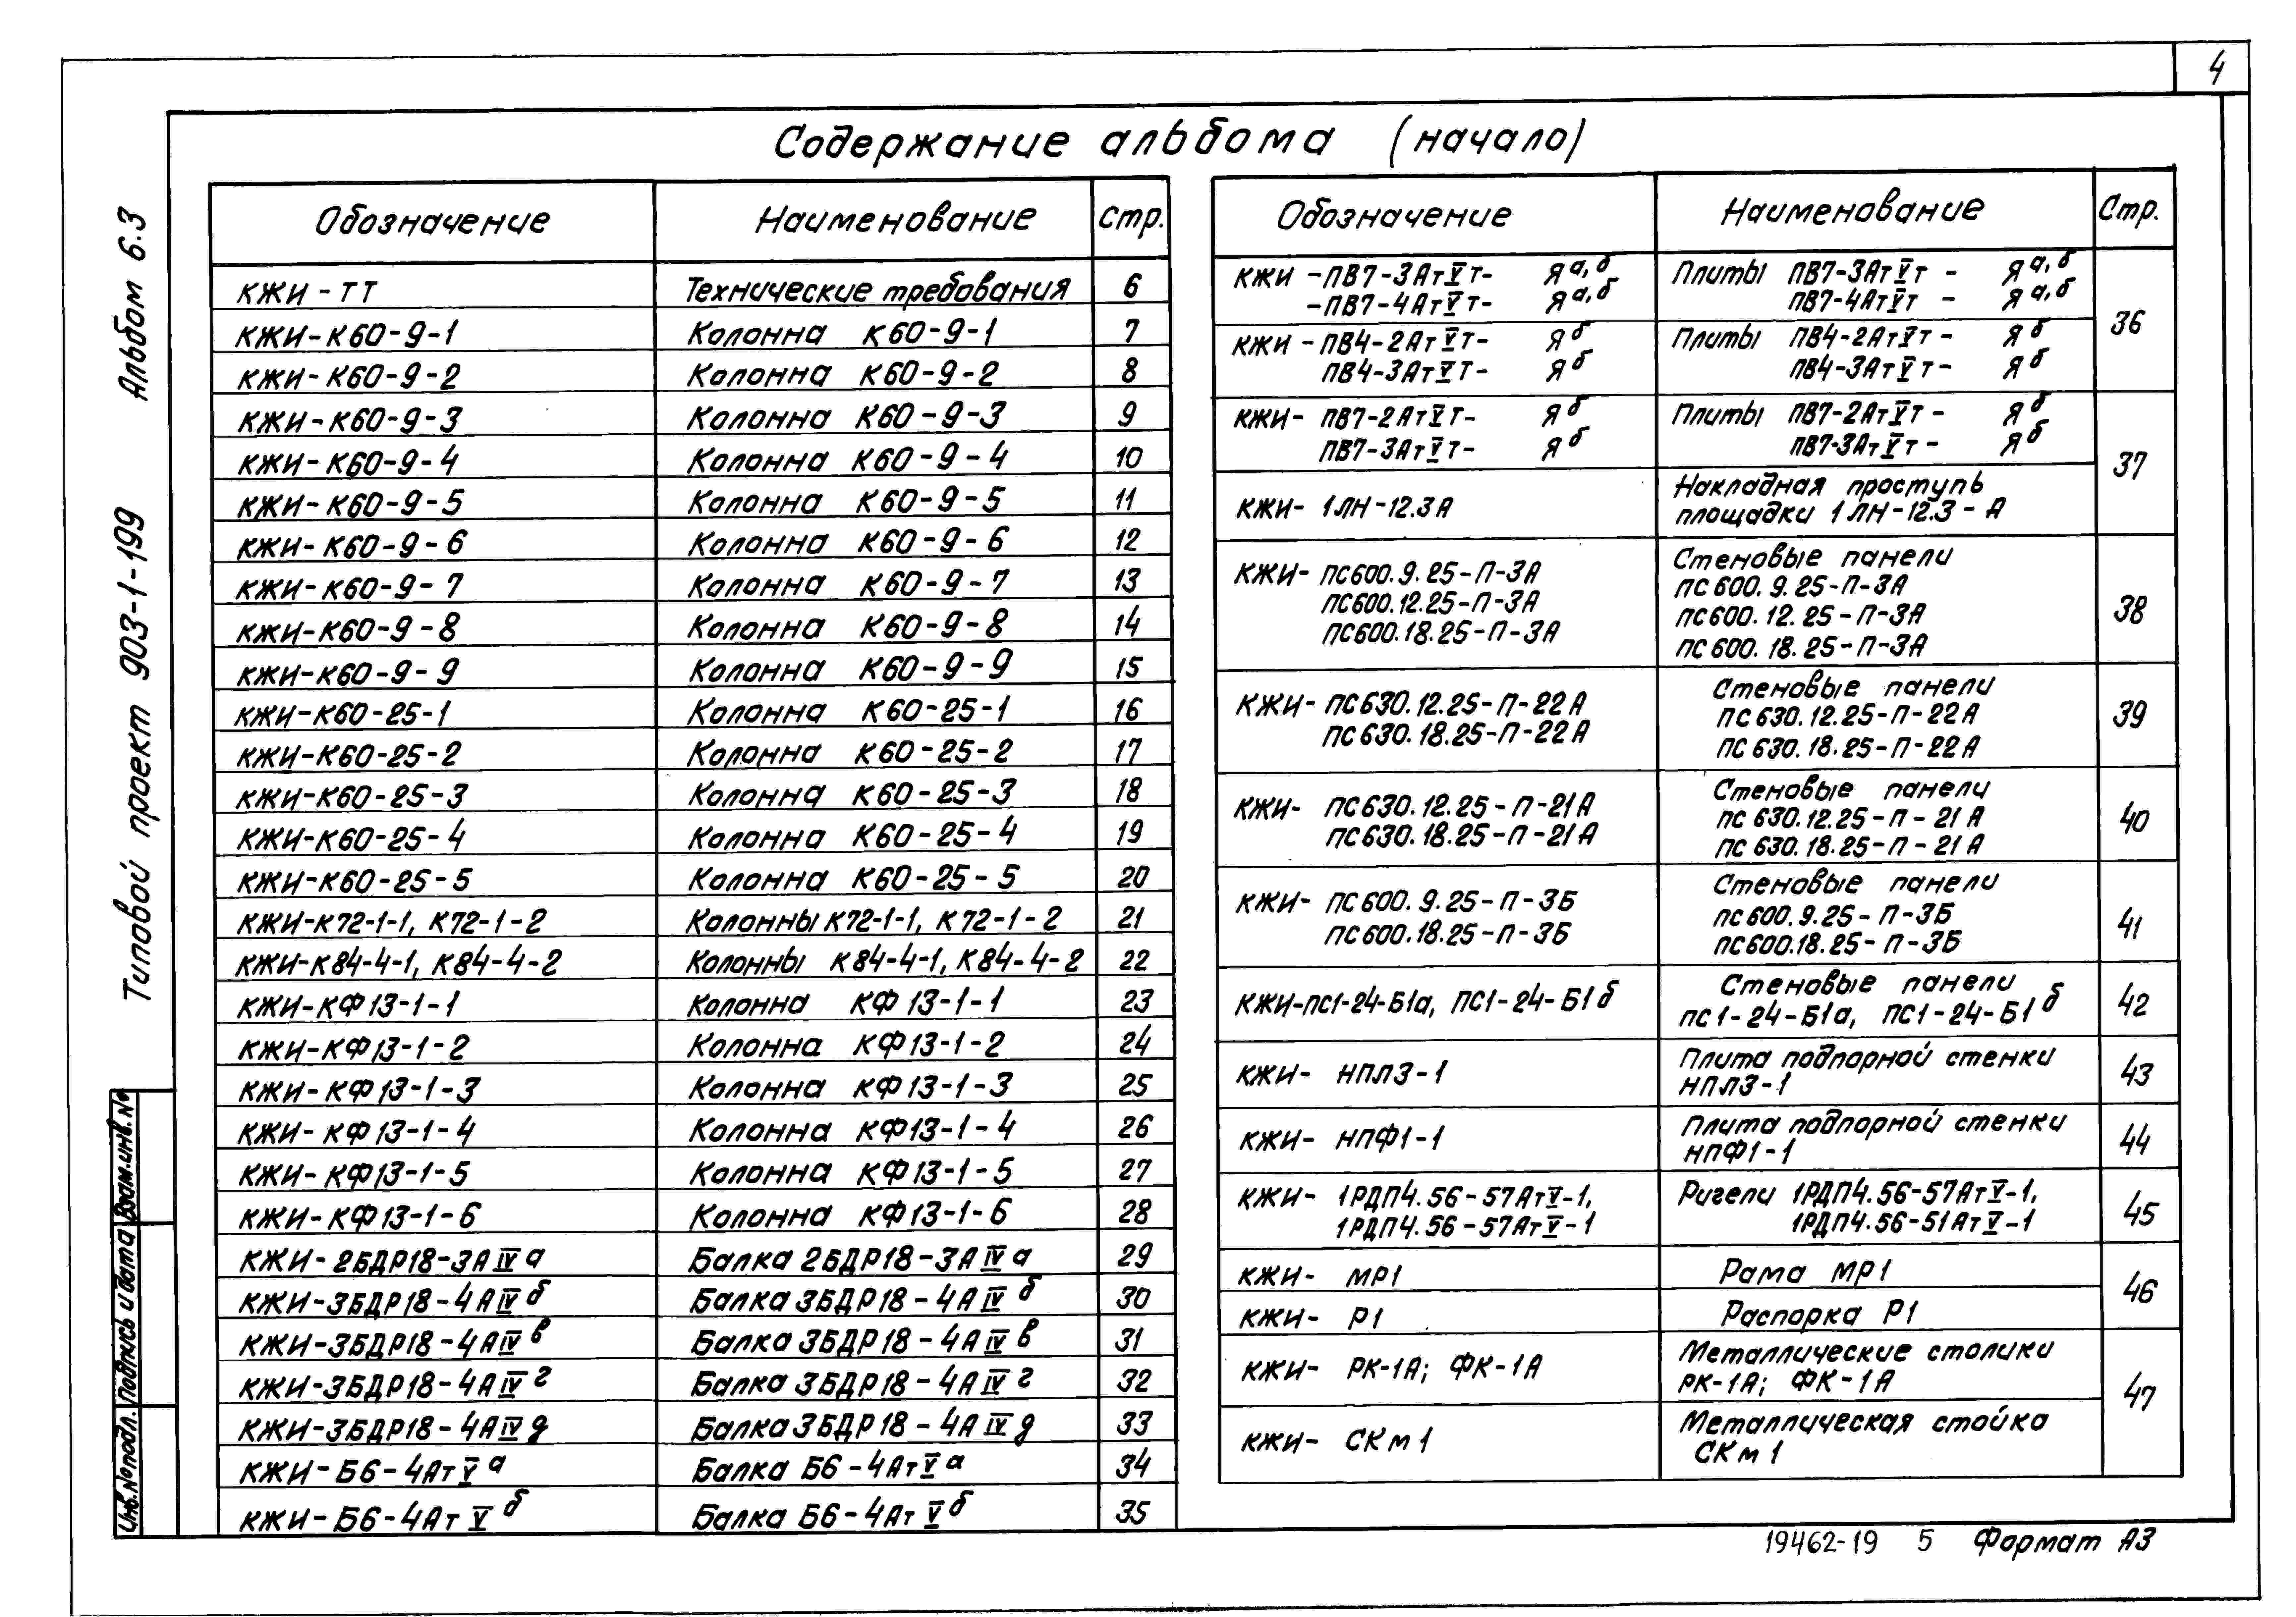 4
Содержание альбома (начало)
Типовой проект 903-1-199 Альбом 6.3
Обозначение Наименование Стр.
КЖИ-ТТ Технические требования 6
КЖИ-К60-9-1 Колонна К60-9-1 7
КЖИ-К60-9-2 Колонна К60-9-2 8
КЖИ-К60-9-3 Колонна К60-9-3 9
КЖИ-К60-9-4 Колонна К60-9-4 10
КЖИ-К60-9-5 Колонна К60-9-5 11
КЖИ-К60-9-6 Колонна К60-9-6 12
КЖИ-К60-9-7 Колонна К60-9-7 13
КЖИ-К60-9-8 Колонна К60-9-8 14
КЖИ-К60-9-9 Колонна К60-9-9 15
КЖИ-К60-25-1 Колонна К60-25-1 16
КЖИ-К60-25-2 Колонна К60-25-2 17
КЖИ-К60-25-3 Колонна К60-25-3 18
КЖИ-К60-25-4 Колонна К60-25-4 19
КЖИ-К60-25-5 Колонна К60-25-5 20
КЖИ-К72-1-1, К72-1-2 Колонны К72-1-1, К72-1-2 21
КЖИ-К84-4-1, К84-4-2 Колонны К84-4-1, К84-4-2 22
КЖИ-КФ13-1-1 Колонна КФ13-1-1 23
КЖИ-КФ13-1-2 Колонна КФ13-1-2 24
КЖИ-КФ13-1-3 Колонна КФ13-1-3 25
КЖИ-КФ13-1-4 Колонна КФ13-1-4 26
КЖИ-КФ13-1-5 Колонна КФ13-1-5 27
КЖИ-КФ13-1-6 Колонна КФ13-1-6 28
КЖИ-2БДР18-3АIVа Балка 2БДР18-3АIVа 29
КЖИ-3БДР18-4АIVб Балка 3БДР18-4АIVб 30
КЖИ-3БДР18-4АIVв Балка 3БДР18-4АIVв 31
КЖИ-3БДР18-4АIVг Балка 3БДР18-4АIVг 32
КЖИ-3БДР18-4АIVд Балка 3БДР18-4АIVд 33
КЖИ-Б6-4АтVа Балка Б6-4АтVа 34
КЖИ-Б6-4АтVб Балка Б6-4АтVб 35
Обозначение Наименование Стр.
КЖИ -ПВ7-3АтVт- Яа,б Плиты ПВ7-3АтVт - Яа,б
-ПВ7-4АтVт- Яа,б ПВ7-4АтVт - Яа,б
36
КЖИ -ПВ4-2АтVт- Яб Плиты ПВ4-2АтVт - Яб
ПВ4-3АтVт- Яб ПВ4-3АтVт - Яб
КЖИ- ПВ7-2АтVт- Яб Плиты ПВ7-2АтVт - Яб
ПВ7-3АтVт- Яб ПВ7-3АтVт - Яб
37
КЖИ- 1ЛН-12.3А Накладная проступь
площадки 1ЛН-12.3-А
Стеновые панели
КЖИ- ПС600.9.25-П-3А ПС600.9.25-П-3А
ПС600.12.25-П-3А ПС600.12.25-П-3А 38
ПС600.18.25-П-3А ПС600.18.25-П-3А
Стеновые панели
КЖИ- ПС630.12.25-П-22А ПС630.12.25-П-22А 39
ПС630.18.25-П-22А ПС630.18.25-П-22А
Стеновые панели
КЖИ- ПС630.12.25-П-21А ПС630.12.25-П-21А 40
ПС630.18.25-П-21А ПС630.18.25-П-21А
Стеновые панели
КЖИ- ПС600.9.25-П-3Б ПС600.9.25-П-3Б 41
ПС600.18.25-П-3Б ПС600.18.25-П-3Б
Стеновые панели
КЖИ-ПС1-24-Б1а, ПС1-24-Б1б ПС1-24-Б1а, ПС1-24-Б1б 42
КЖИ- НПЛ3-1 Плита подпорной стенки 43
НПЛ3-1
КЖИ- НПФ1-1 Плита подпорной стенки 44
НПФ1-1
КЖИ- 1РДП4.56-57АтV-1, Ригели 1РДП4.56-57АтV-1, 45
1РДП4.56-57АтV-1 1РДП4.56-51АтV-1
КЖИ- МР1 Рама МР1
46
КЖИ- Р1 Распорка Р1
КЖИ- РК-1А; ФК-1А Металлические столики
РК-1А; ФК-1А
47
КЖИ- СКм1 Металлическая стойка
СКм1
Взам.инв.№
Подпись и дата
Инв.№подл.
19462-19 5 Формат А3